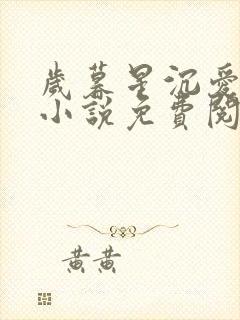 歲暮星沉愛
小說免費閱
黃黃